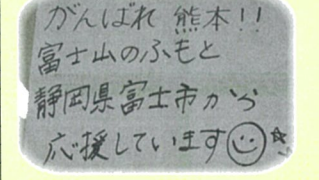 がんばれ 熊本!!
富士山のふもと
静岡県富士市から
応援しています